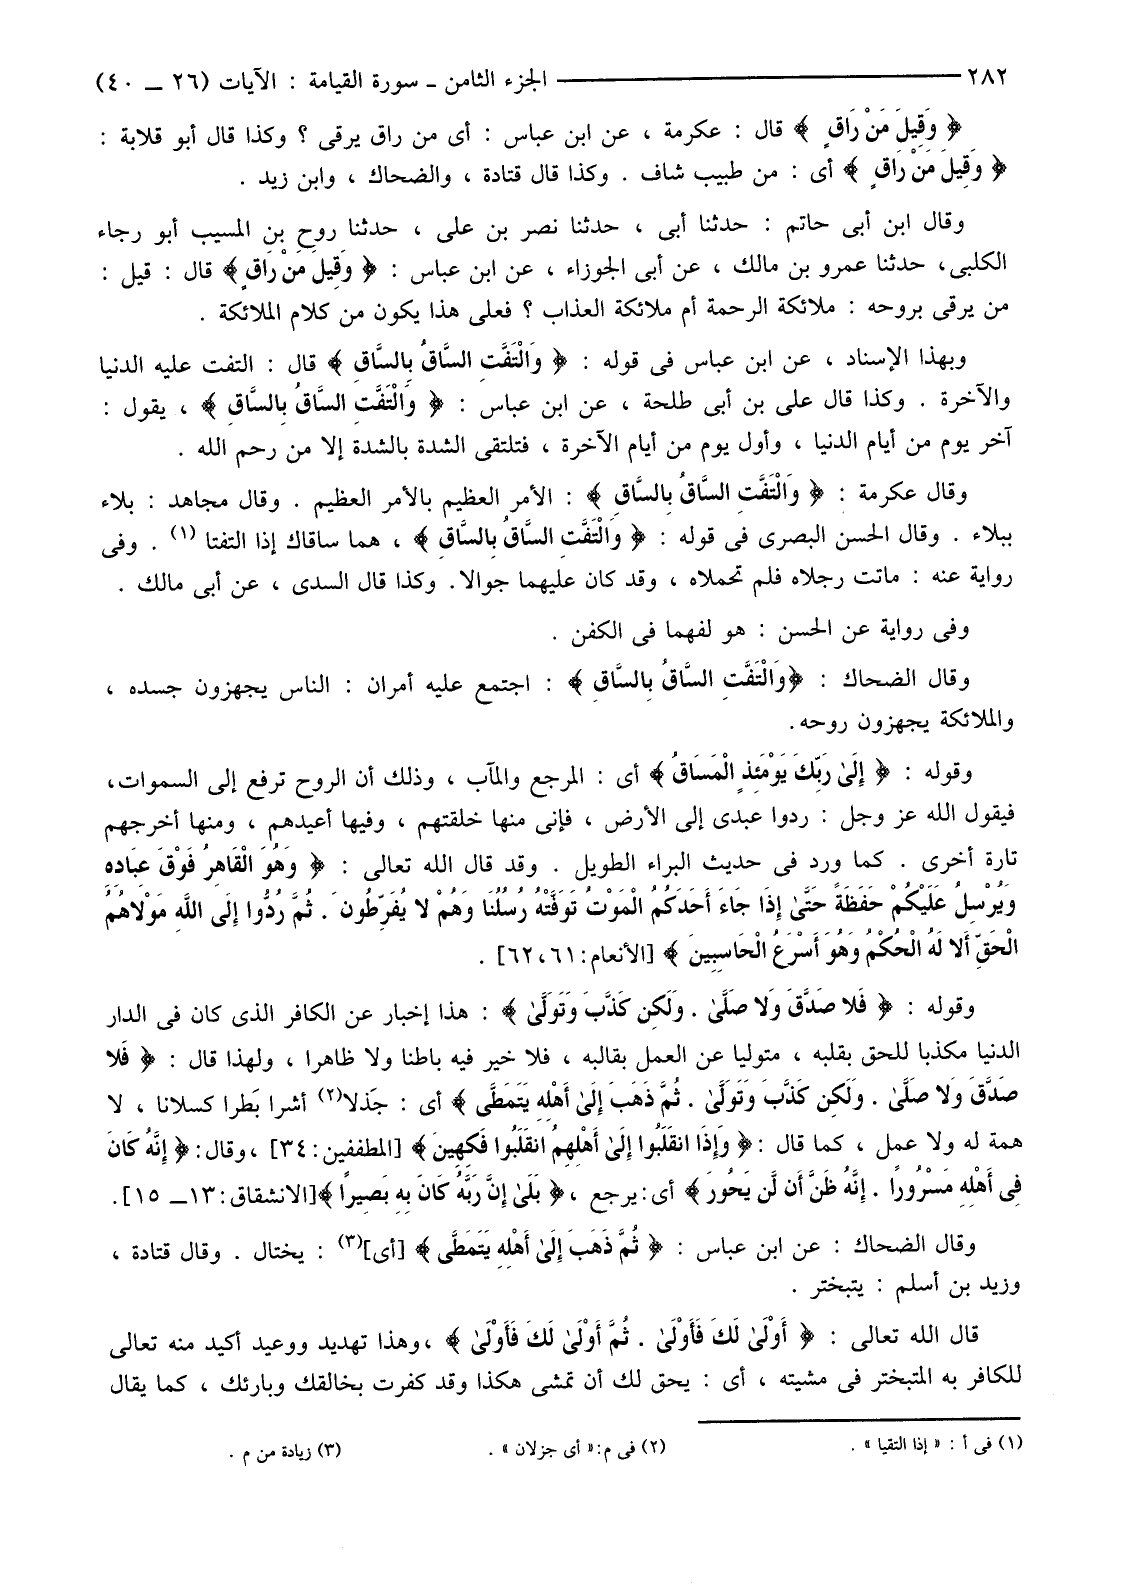 ٢٨٢ ــــــ الجزء الثامن ـ سورة القيامة : الآيات (٢٦ ــ ٤٠)
﴿ وَقِيلَ مَنْ رَاقٍ ﴾ قال : عكرمة ، عن ابن عباس : أى من راق يرقى ؟ وكذا قال أبو قلابة :
﴿ وَقِيلَ مَنْ رَاقٍ ﴾ أى : من طبيب شاف . وكذا قال قتادة ، والضحاك ، وابن زيد .
وقال ابن أبى حاتم : حدثنا أبى ، حدثنا نصر بن على ، حدثنا روح بن المسيب أبو رجاء
الكلبى، حدثنا عمرو بن مالك ، عن أبى الجوزاء ، عن ابن عباس : ﴿ وَقِيلَ مَنْ رَاقٍ ﴾ قال : قيل :
من يرقى بروحه : ملائكة الرحمة أم ملائكة العذاب ؟ فعلى هذا يكون من كلام الملائكة .
وبهذا الإسناد ، عن ابن عباس فى قوله : ﴿ وَالْتَفَّتِ السَّاقُ بِالسَّاقِ ﴾ قال : التفت عليه الدنيا
والآخرة . وكذا قال على بن أبى طلحة ، عن ابن عباس : ﴿ وَالْتَفَّتِ السَّاقُ بِالسَّاقِ ﴾ ، يقول :
آخر يوم من أيام الدنيا ، وأول يوم من أيام الآخرة ، فتلتقى الشدة بالشدة إلا من رحم الله .
وقال عكرمة : ﴿ وَالْتَفَّتِ السَّاقُ بِالسَّاقِ ﴾ : الأمر العظيم بالأمر العظيم . وقال مجاهد : بلاء
ببلاء . وقال الحسن البصرى فى قوله : ﴿ وَالْتَفَّتِ السَّاقُ بِالسَّاقِ ﴾ ، هما ساقاك إذا التفتا (١) . وفى
رواية عنه : ماتت رجلاه فلم تحملاه ، وقد كان عليهما جوالا. وكذا قال السدى ، عن أبى مالك .
وفى رواية عن الحسن : هو لفهما فى الكفن .
وقال الضحاك : ﴿وَالْتَفَّتِ السَّاقُ بِالسَّاقِ ﴾ : اجتمع عليه أمران : الناس يجهزون جسده ،
والملائكة يجهزون روحه.
وقوله : ﴿ إِلَىٰ رَبِّكَ يَوْمَئِذٍ الْمَسَاقُ ﴾ أى : المرجع والمآب ، وذلك أن الروح ترفع إلى السموات،
فيقول الله عز وجل : ردوا عبدى إلى الأرض ، فإنى منها خلقتهم ، وفيها أعيدهم ، ومنها أخرجهم
تارة أخرى . كما ورد فى حديث البراء الطويل . وقد قال الله تعالى : ﴿ وَهُوَ الْقَاهِرُ فَوْقَ عِبَادِهِ
وَيُرْسِلُ عَلَيْكُمْ حَفَظَةً حَتَّىٰ إِذَا جَاءَ أَحَدَكُمُ الْمَوْتُ تَوَفَّتْهُ رُسُلُنَا وَهُمْ لا يُفَرِّطُونَ . ثُمَّ رُدُّوا إِلَى اللَّهِ مَوْلاهُمُ
الْحَقِّ أَلا لَهُ الْحُكْمُ وَهُوَ أَسْرَعُ الْحَاسِبِينَ ﴾ [الأنعام:٦١،٦٢] .
وقوله : ﴿ فَلا صَدَّقَ وَلا صَلَّىٰ . وَلَكِن كَذَّبَ وَتَوَلَّىٰ ﴾ : هذا إخبار عن الكافر الذى كان فى الدار
الدنيا مكذبا للحق بقلبه ، متوليا عن العمل بقالبه ، فلا خير فيه باطنا ولا ظاهرا ، ولهذا قال : ﴿ فَلا
صَدَّقَ وَلا صَلَّىٰ . وَلَكِن كَذَّبَ وَتَوَلَّىٰ . ثُمَّ ذَهَبَ إِلَىٰ أَهْلِهِ يَتَمَطَّى ﴾ أى : جَذلا(٢) أشرا بَطرا كسلانا ، لا
همة له ولا عمل ، كما قال :﴿ وَإِذَا انقَلَبُوا إِلَىٰ أَهْلِهِمُ انقَلَبُوا فَكِهِينَ ﴾ [المطففين:٣٤] ،وقال:﴿ إِنَّهُ كَانَ
فِي أَهْلِهِ مَسْرُورًا . إِنَّهُ ظَنَّ أَن لَّن يَحُورَ ﴾ أى:يرجع ،﴿ بَلَىٰ إِنَّ رَبَّهُ كَانَ بِهِ بَصِيرًا ﴾[الانشقاق:١٣ــ ١٥].
وقال الضحاك : عن ابن عباس : ﴿ ثُمَّ ذَهَبَ إِلَىٰ أَهْلِهِ يَتَمَطَّى ﴾ [أى](٣) : يختال . وقال قتادة ،
وزيد بن أسلم : يتبختر .
قال الله تعالى : ﴿ أَوْلَىٰ لَكَ فَأَوْلَىٰ . ثُمَّ أَوْلَىٰ لَكَ فَأَوْلَىٰ ﴾ ،وهذا تهديد ووعيد أكيد منه تعالى
للكافر به المتبختر فى مشيته ، أى : يحق لك أن تمشى هكذا وقد كفرت بخالقك وبارئك ، كما يقال
(١) فى أ : « إذا التقيا » . (٢) فى م:« أى جزلان » . (٣) زيادة من م .